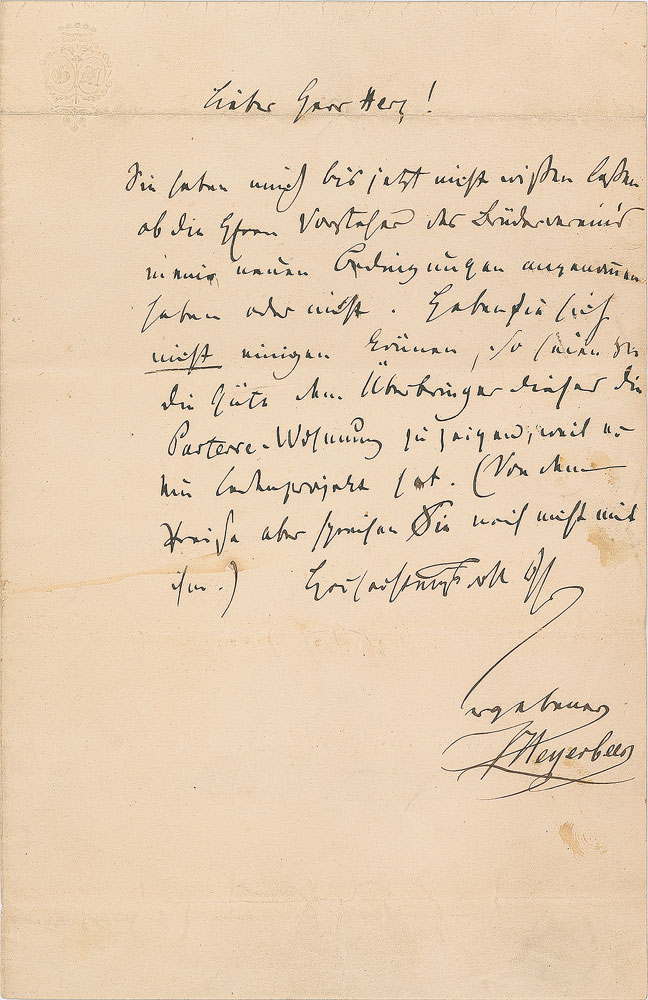 Lieber Herr Herz!
Sie haben mich bis jetzt nicht wißen laßen
ob die Hrren Vorsteher des Brüdervereins
meine neuen Bedingungen angenommen
haben oder nicht. Haben Sie sich
nicht einigen können, so seien Sie
die Güte dem Überbringer dieses die
Parterre-Wohnung zu zeigen, weil er
hat. (Von dem
Preise aber sprechen Sie noch nicht mit
ihm.) Hochachtungsvoll Ihr
ergebener
Meyerbeer